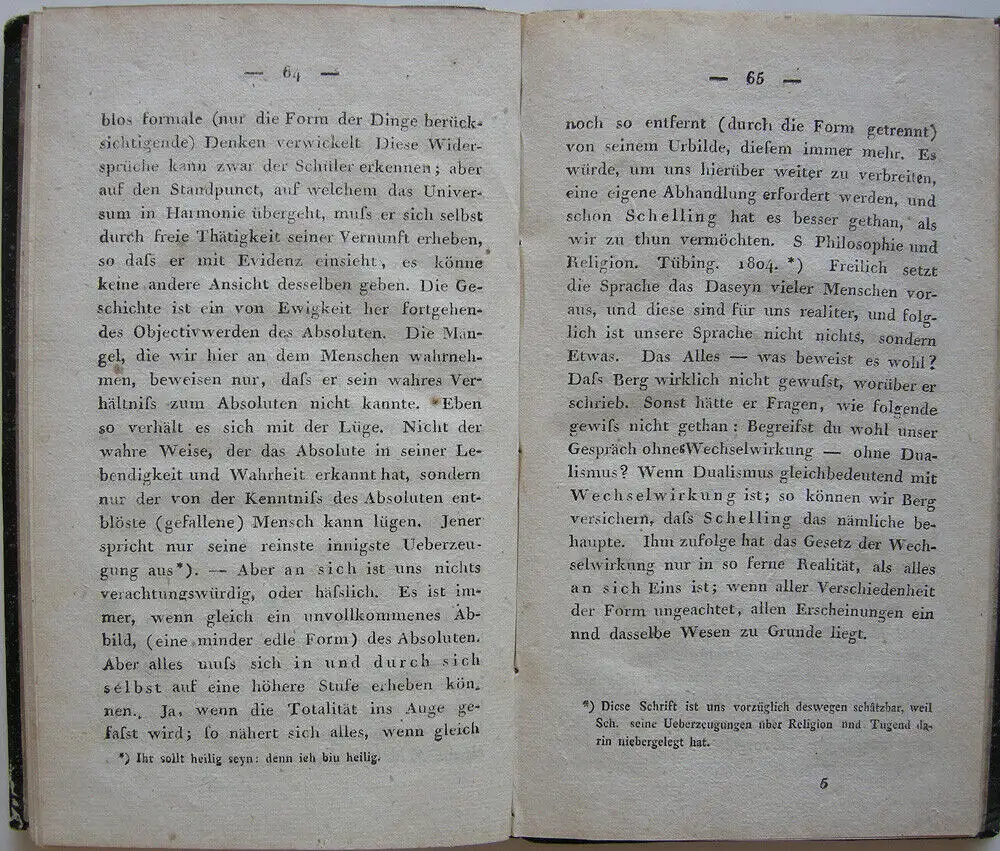 — 64 —
blos formale (nur die Form der Dinge berück-
sichtigende) Denken verwickelt Diese Wider-
sprüche kann zwar der Schüler erkennen; aber
auf den Standpunct, auf welchem das Univer-
sum in Harmonie übergeht, muſs er sich selbst
durch freie Thätigkeit seiner Vernunft erheben,
so daſs er mit Evidenz einsieht, es könne
keine andere Ansicht desselben geben. Die Ge-
schichte ist ein von Ewigkeit her fortgehen-
des Objectivwerden des Absoluten. Die Män-
gel, die wir hier an dem Menschen wahrneh-
men, beweisen nur, daſs er sein wahres Ver-
hältniſs zum Absoluten nicht kannte. Eben
so verhält es sich mit der Lüge. Nicht der
wahre Weise, der das Absolute in seiner Le-
bendigkeit und Wahrheit erkannt hat, sondern
nur der von der Kenntniſs des Absoluten ent-
blöste (gefallene) Mensch kann lügen. Jener
spricht nur seine reinste innigste Ueberzeu-
gung aus*). — Aber an sich ist uns nichts
verachtungswürdig, oder häſslich. Es ist im-
mer, wenn gleich ein unvollkommenes Ab-
bild, (eine minder edle Form) des Absoluten.
Aber alles muſs sich in und durch sich
selbst auf eine höhere Stufe erheben kön-
nen. Ja, wenn die Totalität ins Auge ge-
faſst wird; ſo nähert sich alles, wenn gleich
*) Ihr sollt heilig seyn: denn ich biu heilig.
— 65 —
noch so entfernt (durch die Form getrennt)
von seinem Urbilde, dieſem immer mehr. Es
würde, um uns hierüber weiter zu verbreiten,
eine eigene Abhandlung erfordert werden, und
schon Schelling hat es besser gethan, als
wir zu thun vermöchten. S Philosophie und
Religion. Tübing. 1804. *) Freilich setzt
die Sprache das Daseyn vieler Menschen vor-
aus, und diese sind für uns realiter, und folg-
lich ist unsere Sprache nicht nichts, sondern
Etwas. Das Alles — was beweist es wohl?
Daſs Berg wirklich nicht gewuſst, worüber er
schrieb. Sonst hätte er Fragen, wie folgende
gewiſs nicht gethan: Begreifst du wohl unser
Gespräch ohne Wechselwirkung — ohne Dua-
lismus? Wenn Dualismus gleichbedeutend mit
Wechselwirkung ist; so können wir Berg
versichern, daſs Schelling das nämliche be-
haupte. Ihm zufolge hat das Gesetz der Wech-
selwirkung nur in so ferne Realität, als alles
an sich Eins ist; wenn aller Verschiedenheit
der Form ungeachtet, allen Erscheinungen ein
nnd dasselbe Wesen zu Grunde liegt.
*) Diese Schrift ist uns vorzüglich deswegen schätzbar, weil
Sch. seine Ueberzeugungen über Religion und Tugend da-
rin niebergelegt hat.
5